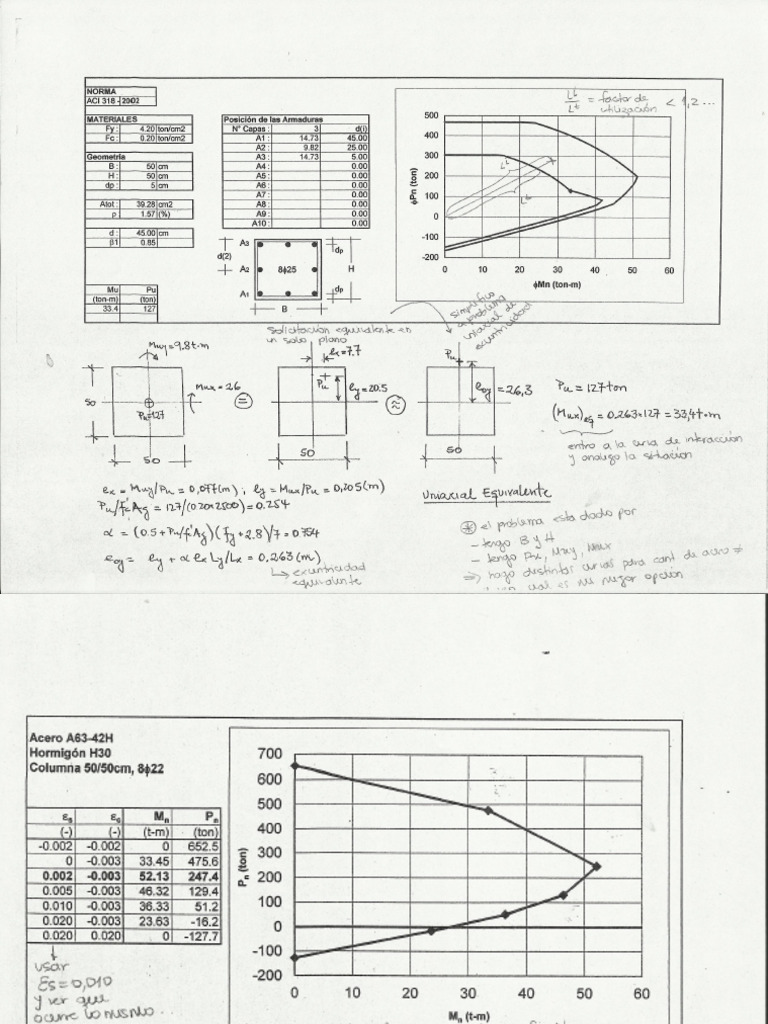 NORMA
ACI 318 - 2002
MATERIALES
Fy : 4.20 ton/cm2
Fc : 0.20 ton/cm2
Geometria
B : 50 cm
H : 50 cm
dp : 5 cm
Atot : 39.28 cm2
ρ : 1.57 (%)
d : 45.00 cm
β1 0.85
Mu Pu
(ton-m) (ton)
33.4 127
Posición de las Armaduras
N° Capas : 3 d(i)
A1 : 14.73 45.00
A2 : 9.82 25.00
A3 : 14.73 5.00
A4 : 0.00
A5 : 0.00
A6 : 0.00
A7 : 0.00
A8 : 0.00
A9 : 0.00
A10 : 0.00
A3
d(2)
A2
A1
8ϕ25
dp
H
dp
B
= factor de utilización < 1,2 ...
500
400
300
200
100
0
-100
-200
ϕPn (ton)
0 10 20 30 40 50 60
ϕMn (ton-m)
simplifico a problema uniaxial de excentricidad
solicitación equivalente en
un solo plano
Muy=9.8t·m
Mux=26
Pu=127
50
50
=
ex=7.7
Pu
ey=20.5
50
≈
Pu
eoy=26,3
50
Pu = 127 ton
(Mux)eq = 0.263×127 = 33,4t·m
entro a la curva de interacción
y analizo la situación
ex = Muy/Pu = 0,077(m) ; ey = Mux/Pu = 0,205(m)
Pu/f'cAg = 127/(0.20×2500) = 0.254
α = (0.5 + Pu/f'Ag)(fy+2.8)/7 = 0.754
eoy = ey + α ex Ly/Lx = 0,263(m)
excentricidad
equivalente
Uniaxial Equivalente
el problema esta dado por
- tengo B y H
- tengo Pu, Muy, Mux
⇒ hago distintas curvas para cant de acero ≠
cual es mi mejor opción
Acero A63-42H
Hormigón H30
Columna 50/50cm, 8ϕ22
εs εc Mn Pn
(-) (-) (t-m) (ton)
-0.002 -0.002 0 652.5
0 -0.003 33.45 475.6
0.002 -0.003 52.13 247.4
0.005 -0.003 46.32 129.4
0.010 -0.003 36.33 51.2
0.020 -0.003 23.63 -16.2
0.020 0.020 0 -127.7
usar
Es=0,010
y ver que
ocurre lo mismo...
700
600
500
400
300
200
100
0
-100
-200
Pn (ton)
0 10 20 30 40 50 60
Mn (t-m)